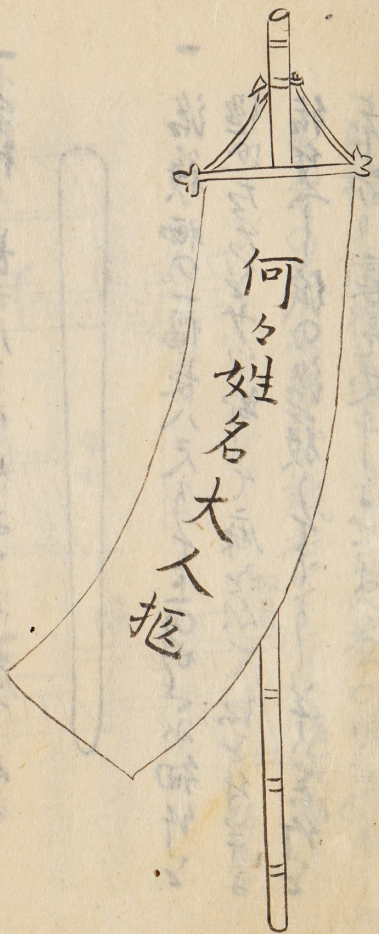 何々姓名大人柩